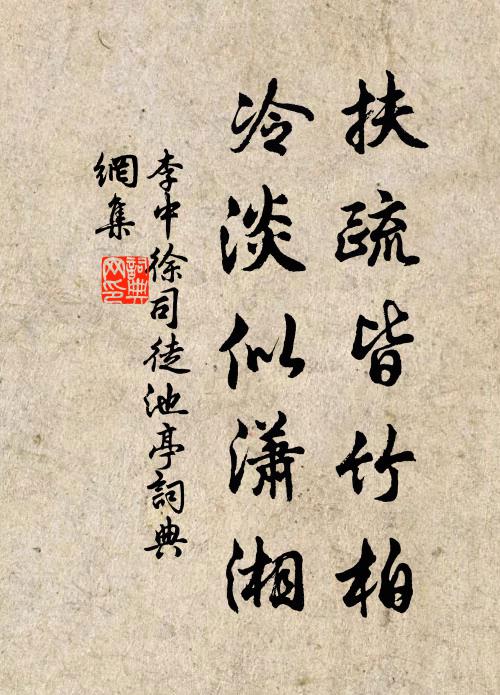 扶疏皆竹柏
冷淡似瀟湘
李中徐司徒池亭詞典
網集
詞典
网印